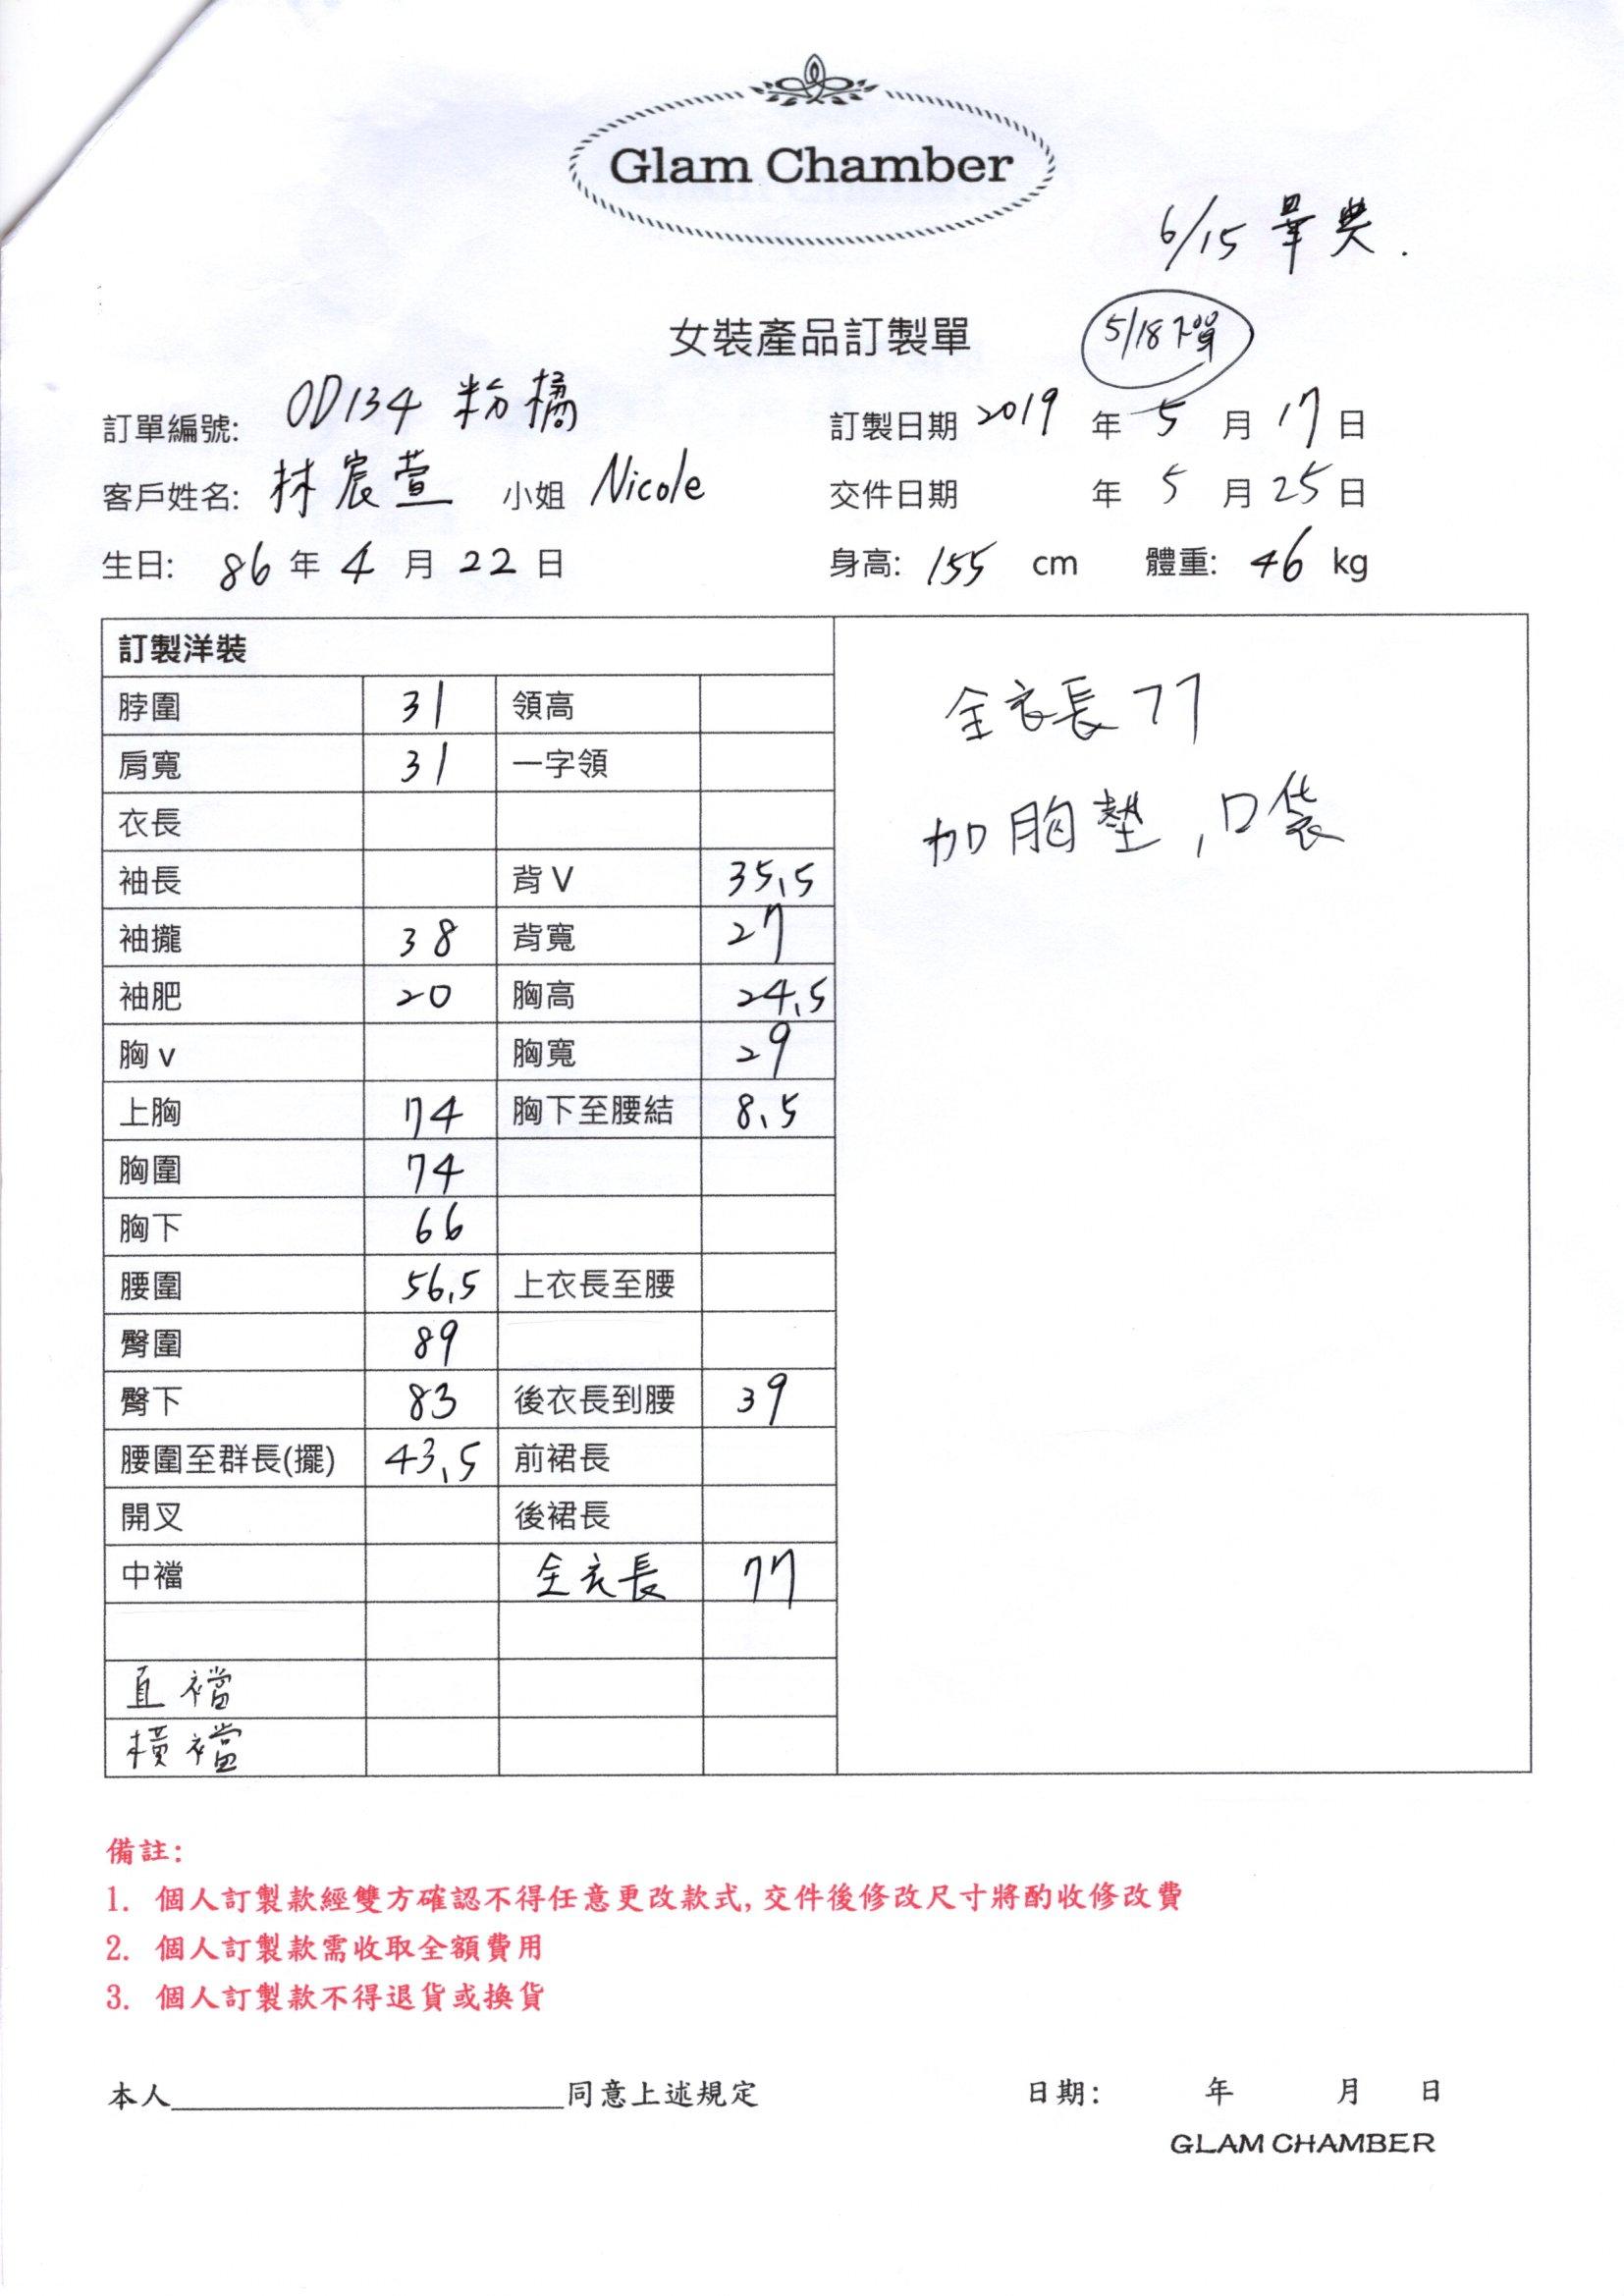 Glam Chamber
6/15 畢典.
女裝產品訂製單
5/18下單
訂單編號: OD134 粉橘
訂製日期 2019 年 5 月 17 日
客戶姓名: 林宸萱 小姐 Nicole
交件日期 年 5 月 25 日
生日: 86 年 4 月 22 日
身高: 155 cm 體重: 46 kg
訂製洋裝
脖圍 31 領高
肩寬 31 一字領
衣長
袖長 背V 35.5
袖攏 38 背寬 27
袖肥 20 胸高 24.5
胸v 胸寬 29
上胸 74 胸下至腰結 8.5
胸圍 74
胸下 66
腰圍 56.5 上衣長至腰
臀圍 89
臀下 83 後衣長到腰 39
腰圍至群長(擺) 43.5 前裙長
開叉 後裙長
中襠 全衣長 77
直襠
橫襠
全衣長77
加胸墊,口袋
備註:
1. 個人訂製款經雙方確認不得任意更改款式,交件後修改尺寸將酌收修改費
2. 個人訂製款需收取全額費用
3. 個人訂製款不得退貨或換貨
本人____________________同意上述規定
日期: 年 月 日
GLAM CHAMBER